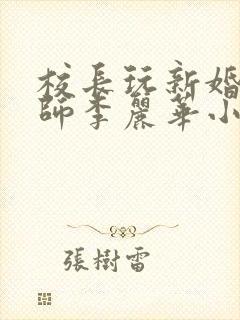 校長玩新婚
師李麗華小
張樹雷